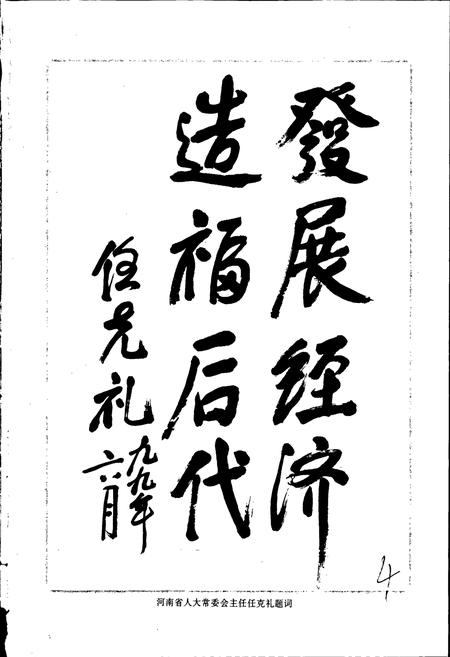 發展经济
造福后代
任克礼
九九年
六月
河南省人大常委会主任任克礼题词
4